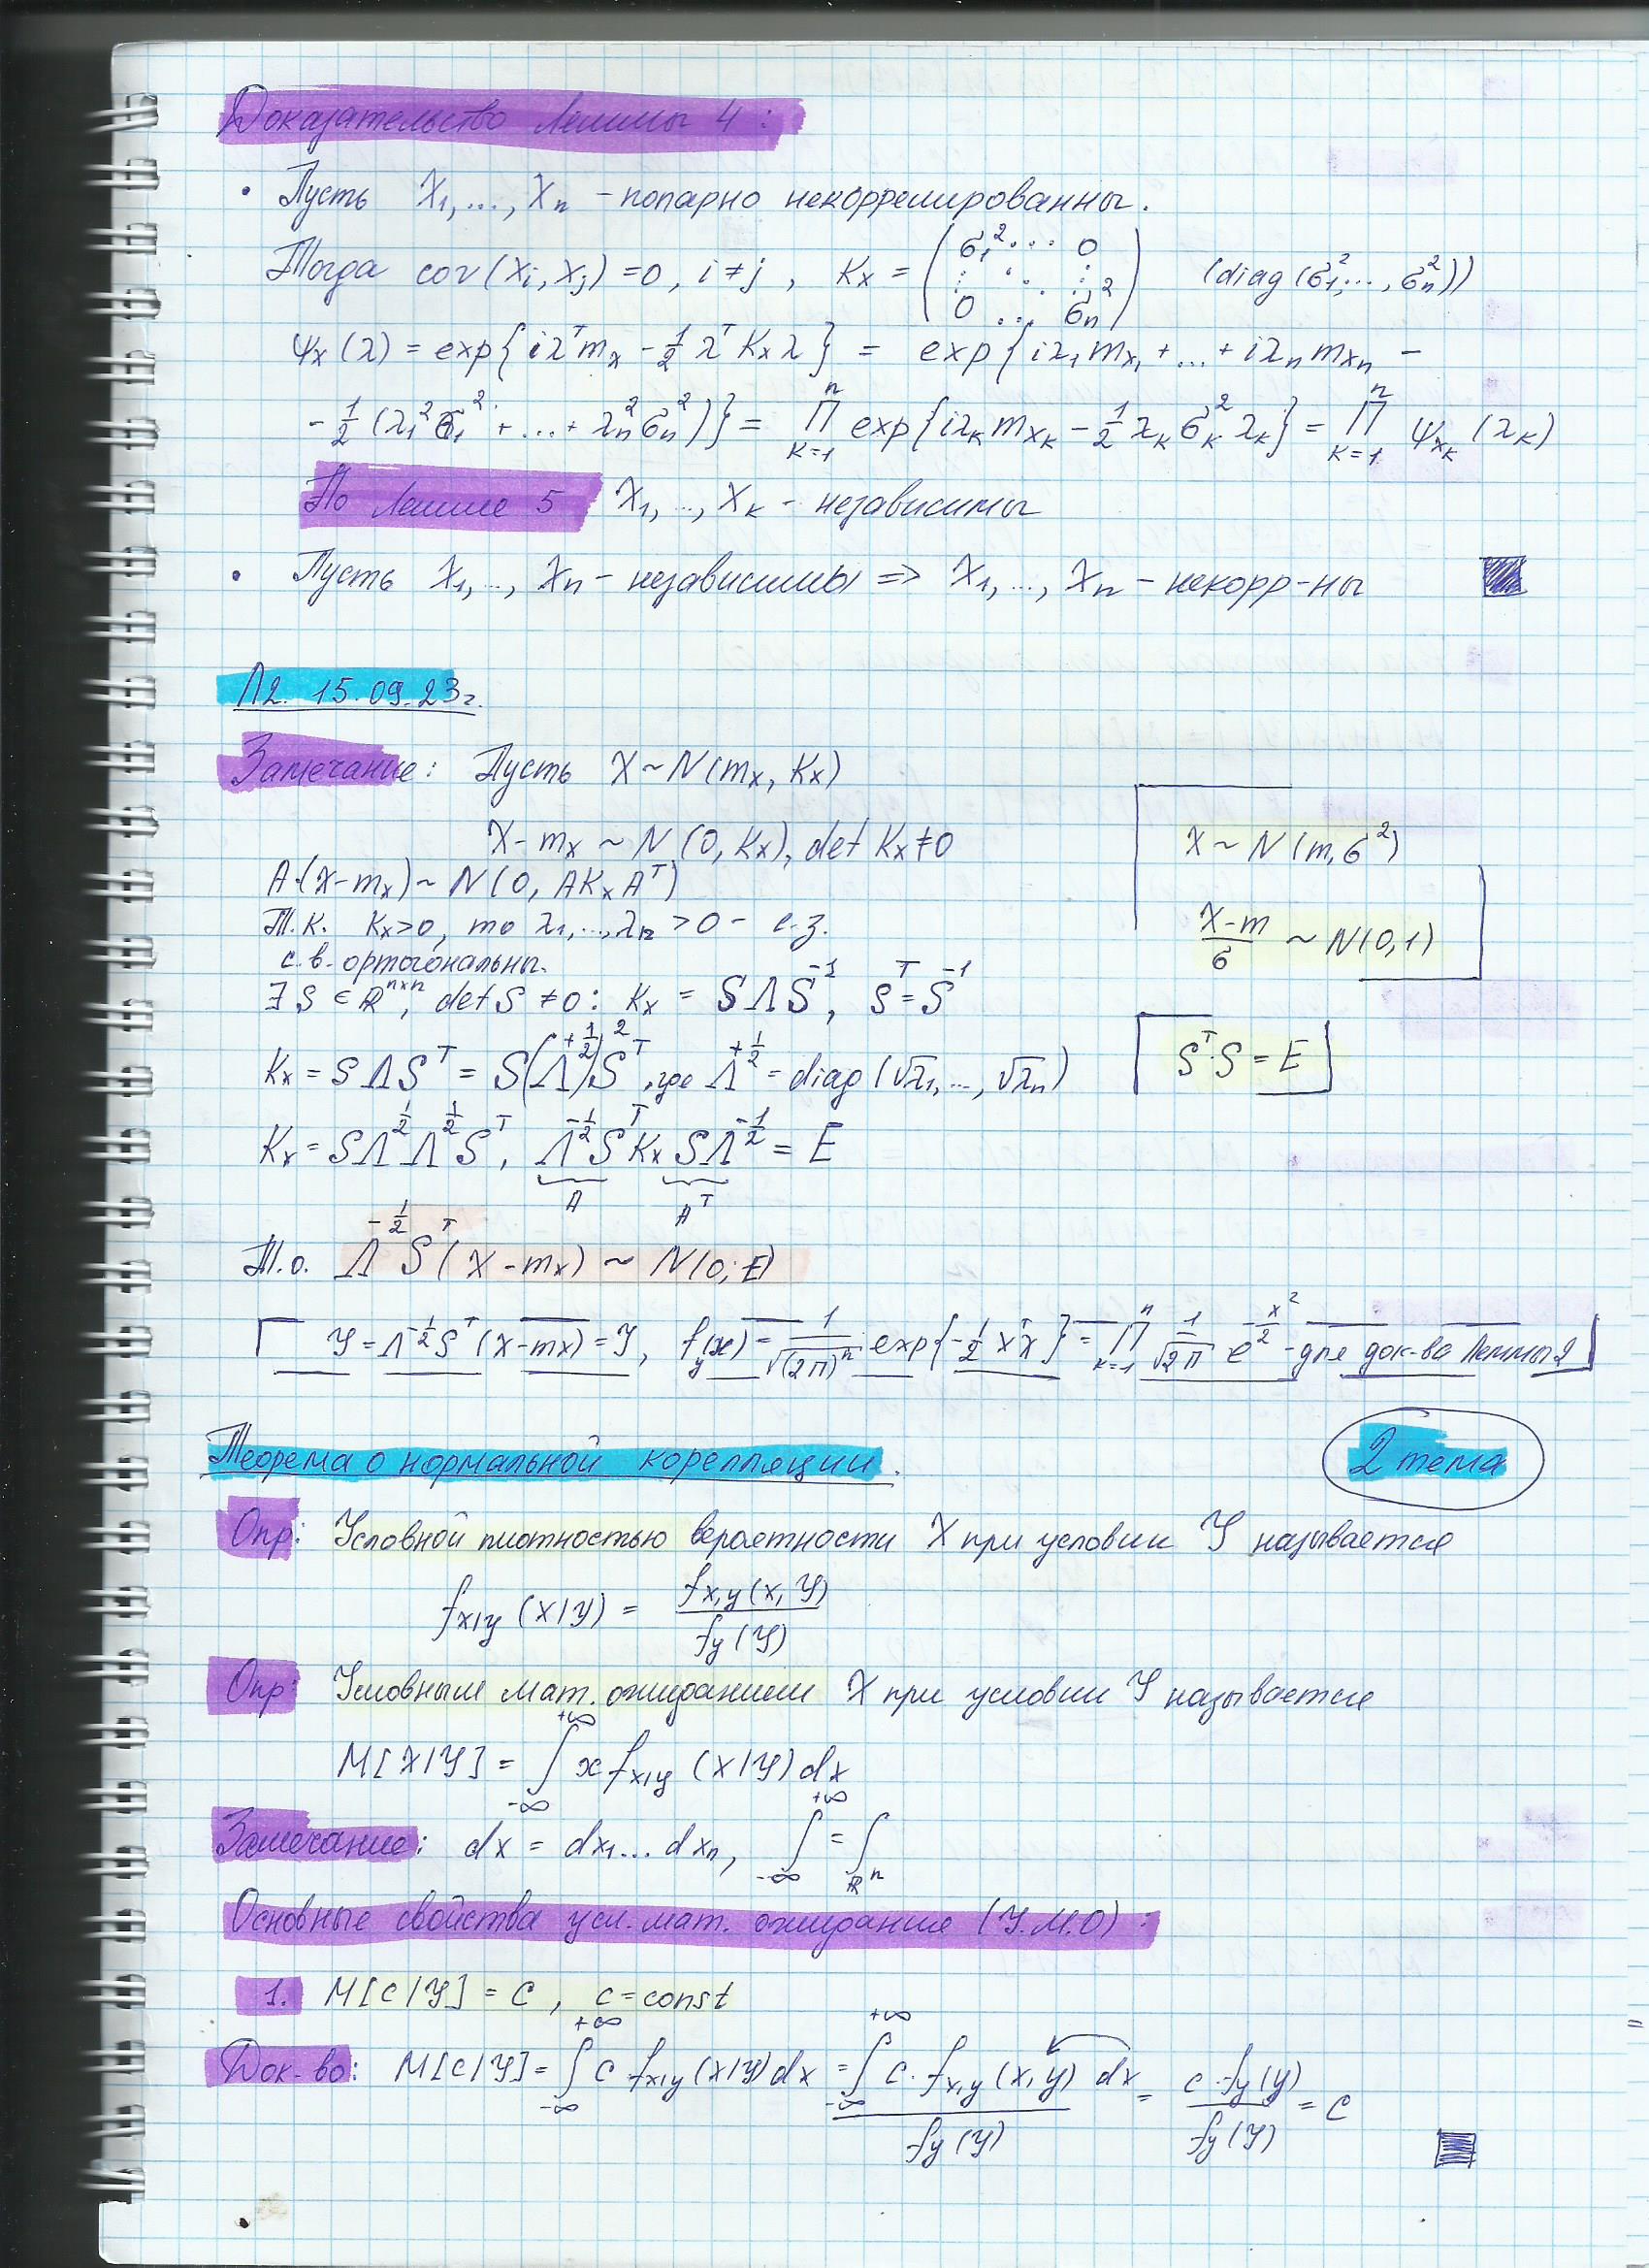 Доказательство Леммы 4:
• Пусть X₁,...,Xₙ - попарно некоррелированны.
Тогда cov(Xᵢ, Xⱼ) = 0, i ≠ j, Kₓ = (σ₁² ... 0 ⋮ ⋱ ⋮ 0 ... σₙ²) (diag(σ₁²,...,σₙ²))
Ψₓ(λ) = exp{iλᵀmₓ - 1/2 λᵀKₓλ} = exp{iλ₁mₓ₁ + ... + iλₙmₓₙ -
- 1/2 (λ₁²σ₁² + ... + λₙ²σₙ²)} = ∏ₖ₌₁ⁿ exp{iλₖmₓₖ - 1/2 λₖσₖ²λₖ} = ∏ₖ₌₁ⁿ Ψₓₖ(λₖ)
По Лемме 5 X₁,..,Xₖ - независимы
• Пусть X₁,..,Xₙ - независимы => X₁,...,Xₙ - некорр-ны
Л2. 15.09.23г.
Замечание: Пусть X ~ N(mₓ, Kₓ)
X - mₓ ~ N(0, Kₓ), det Kₓ ≠ 0
X ~ N(m, σ²)
A·(X - mₓ) ~ N(0, AKₓAᵀ)
Т.к. Kₓ > 0, то λ₁,...,λₙ > 0 - с.з.
(X - m)/σ ~ N(0,1)
с.в. ортогональны.
∃ S ∈ ℝⁿˣⁿ, det S ≠ 0: Kₓ = SΛS⁻¹, Sᵀ = S⁻¹
Kₓ = SΛSᵀ = S(Λ^(+1/2))²Sᵀ, где Λ^(+1/2) = diag(√λ₁,...,√λₙ)
Sᵀ·S = E
Kₓ = SΛ^(1/2)Λ^(1/2)Sᵀ, Λ^(-1/2)SᵀKₓSΛ^(-1/2) = E
A Aᵀ
Т.о. Λ^(-1/2)Sᵀ(X - mₓ) ~ N(0; E)
Y = Λ^(-1/2)Sᵀ(X - mₓ) = Y, f_y(x) = 1/√(2π)ⁿ exp{-1/2 xᵀx} = ∏ₖ₌₁ⁿ 1/√2π e^(-x²/2) - для док-ва Леммы 2
Теорема о нормальной корелляции.
2 тема
Опр: Условной плотностью вероятности X при условии Y называется
f_x|y (x|y) = f_x,y (x, y) / f_y (y)
Опр: Условным мат. ожиданием X при условии Y называется
M[X|Y] = ∫₋∞^+∞ x f_x|y (x|y) dx
Замечание: dx = dx₁...dxₙ, ∫₋∞^+∞ = ∫_ℝⁿ
Основные свойства усл. мат. ожидание (У.М.О):
1. M[c|Y] = c, c = const
Док-во: M[c|Y] = ∫₋∞^+∞ c f_x|y (x|y) dx = ∫₋∞^+∞ c · f_x,y (x, y) dx / f_y (y) = c · f_y (y) / f_y (y) = c